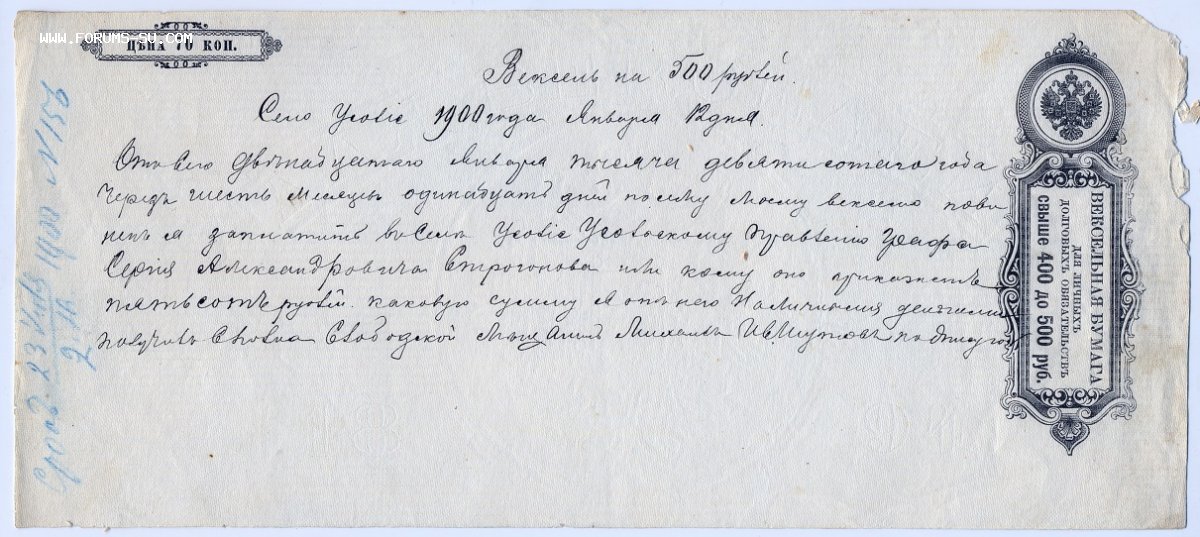 WWW.FORUMS-SU.COM
ЦѢНА 70 КОП.
Вексель на 500 рублей.
Село Усолье 1900 года Января 12 дня.
Отъ сего двѣнадцатаго Января тысяча девятисотаго года
черезъ шесть месяцъ одинадцать дней по сему моему векселю пови
ненъ я заплатить въ Селѣ Усольѣ Усольскому Правленію Графа
Сергія Александровича Строгонова или кому оно прикажетъ
пятьсотъ рублей. каковую сумму я отъ него наличными деньгами
получилъ Слободской Мѣщанинъ Михаилъ
ВЕКСЕЛЬНАЯ БУМАГА
ДЛЯ ЛИЧНЫХЪ
ДОЛГОВЫХЪ ОБЯЗАТЕЛЬСТВЪ
СВЫШЕ 400 ДО 500 РУБ.
Срокъ 23 1900 N 156